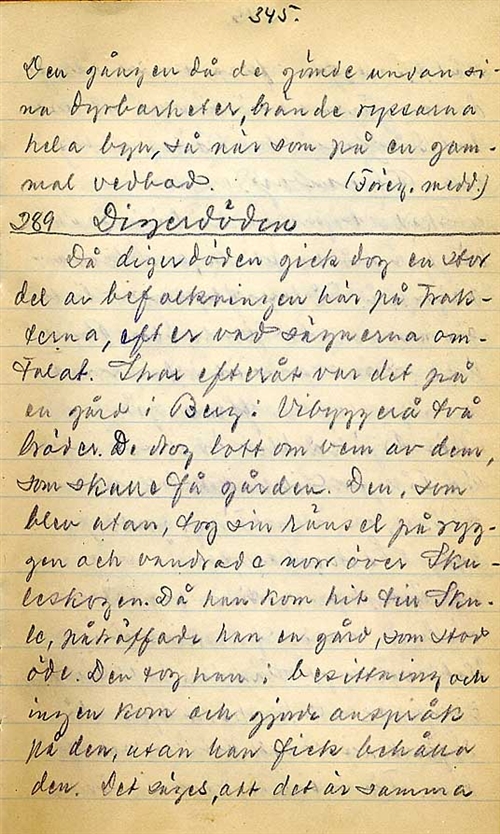 345.
Den gången då de gömde undan si-
na dyrbarheter, brände ryssarna
hela byn, så när som på en gam-
mal vedbod. (Föreg. medd.)
289 Digerdöden
Då digerdöden gick dog en stor
del av befolkningen här på trak-
terna, efter vad sägnerna om-
talat. Snar efteråt var det på
en gård i Berg i Vibyggerå två
bröder. De drog lott om vem av dem,
som skulle få gården. Den, som
blev utan, tog sin ränsel på ryg-
gen och vandrade norr över Sku-
leskogen. Då han kom hit till Sku-
le, påträffade han en gård, som stod
öde. Den tog han i besittning och
ingen kom och gjorde anspråk
på den, utan han fick behålla
den. Det säges, att det är samma